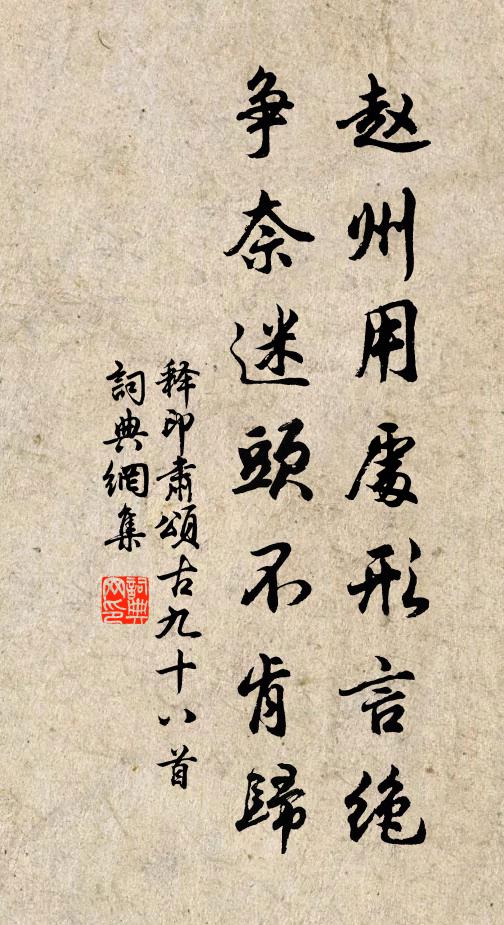 赵州用處形言绝
争奈迷頭不肯歸
释印肃頌古九十八首
詞典網集
詞典网印